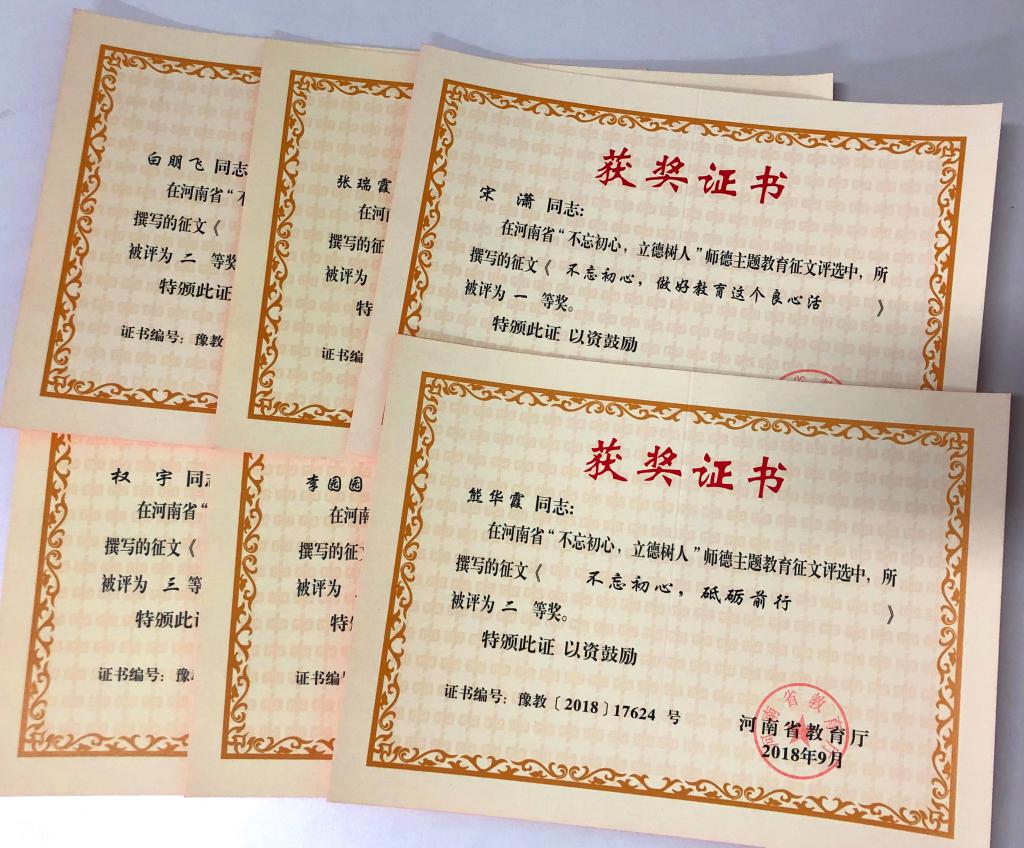 白朋飞 同志
在河南省“不
撰写的征文《
被评为 二 等奖
特颁此证
证书编号：豫教
张瑞霞
在河南
撰写的征
被评为
特
证书编
获奖证书
宋 潇 同志：
在河南省“不忘初心，立德树人”师德主题教育征文评选中，所
撰写的征文《 不忘初心，做好教育这个良心活 》
被评为 一 等奖。
特颁此证 以资鼓励
权 宇 同志
在河南省“
撰写的征文《
被评为 三 等
特颁此证
证书编号：豫
李园园
在河南
撰写的征文
被评为
特
证书编号
获奖证书
熊华霞 同志：
在河南省“不忘初心，立德树人”师德主题教育征文评选中，所
撰写的征文《 不忘初心，砥砺前行 》
被评为 二 等奖。
特颁此证 以资鼓励
证书编号：豫教〔2018〕17624 号
河南省教育厅
2018年9月